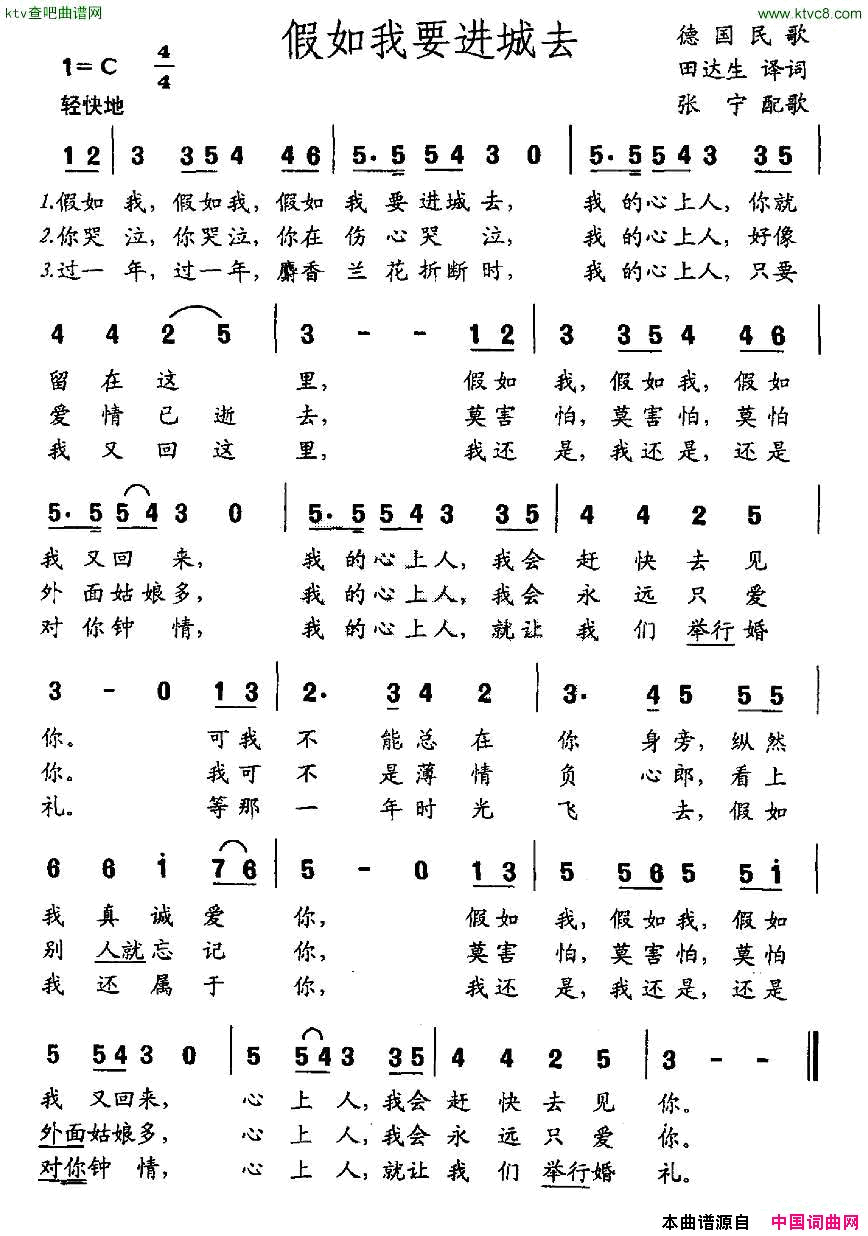 ktv查吧曲谱网
www.ktvc8.com
假如我要进城去
德国民歌
1=C 4/4
田达生 译词
轻快地
张宁 配歌
1 2 | 3 3 5 4 4 6 | 5· 5 5 4 3 0 | 5· 5 5 4 3 3 5 |
1.假如我,假如我,假如我要进城去, 我的心上人,你就
2.你哭泣,你哭泣,你在伤心哭泣, 我的心上人,好像
3.过一年,过一年,麝香兰花折断时, 我的心上人,只要
4 4 2 5 | 3 - - 1 2 | 3 3 5 4 4 6 |
留在这里, 假如我,假如我,假如
爱情已逝去, 莫害怕,莫害怕,莫怕
我又回这里, 我还是,我还是,还是
5· 5 5 4 3 0 | 5· 5 5 4 3 3 5 | 4 4 2 5 |
我又回来, 我的心上人,我会赶快去见
外面姑娘多, 我的心上人,我会永远只爱
对你钟情, 我的心上人,就让我们举行婚
3 - 0 1 3 | 2· 3 4 2 | 3· 4 5 5 5 |
你。 可我不能总在你身旁,纵然
你。 我可不是薄情负心郎,看上
礼。 等那一年时光飞去,假如
6 6 i 7 6 | 5 - 0 1 3 | 5 5 6 5 5 i |
我真诚爱你, 假如我,假如我,假如
别人就忘记你, 莫害怕,莫害怕,莫怕
我还属于你, 我还是,我还是,还是
5 5 4 3 0 | 5 5 4 3 3 5 | 4 4 2 5 | 3 - - ‖
我又回来, 心上人,我会赶快去见你。
外面姑娘多, 心上人,我会永远只爱你。
对你钟情, 心上人,就让我们举行婚礼。
本曲谱源自 中国词曲网